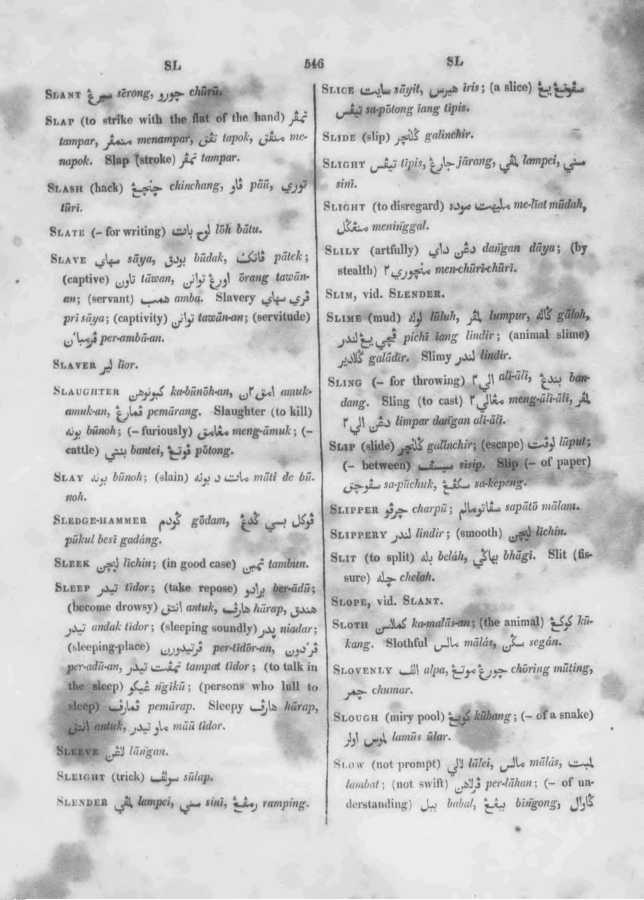 SL 546 SL
SLANT سيرڠ sērong, چورو chūrū.
SLAP (to strike with the flat of the hand) تمڤر
tampar, منمڤر menampar, تڤق tapok, منڤق me-
napok. Slap (stroke) تمڤر tampar.
SLASH (hack) چنچڠ chinchang, ڤاو pāū, توري
tūrī.
SLATE (– for writing) لوح بات lōh bātu.
SLAVE سهاي sāya, بودق būdak, ڤاتک pātek;
(captive) تاون tāwan, اورڠ توانن ōrang tawān-
an; (servant) همب amba. Slavery ڤري سهاي
prī sāya; (captivity) توانن tawān-an; (servitude)
per-ambā-an.
SLAVER لير lior.
SLAUGHTER کبونوهن ka-būnōh-an, amuk-
amuk-an, ڤمارڠ pemārang. Slaughter (to kill)
بونه būnoh; (– furiously) مڠامق meng-āmuk; (–
cattle) بنتي bantei, ڤوتڠ pōtong.
SLAY بونه būnoh; (slain) مات د بونه māti de bū-
noh.
SLEDGE-HAMMER گودم gōdam, ڤوکل بسي گدڠ
pūkul besī gadáng.
SLEEK ليچن līchin; (in good case) تمبن tambun.
SLEEP تيدر tīdor; (take repose) برادو ber-ādū;
(become drowsy) انتق antuk, هارڤ hārap, هندق
تيدر andak tīdor; (sleeping soundly) ندر niadar;
(sleeping-place) ڤرتيدورن per-tīdōr-an, ڤرادون
per-adū-an, تمڤت تيدر tampat tīdor; (to talk in
the sleep) ڠيکو ngīkū; (persons who lull to
sleep) ڤمارڤ pemārap. Sleepy هارڤ hārap,
انتق antuk, ماو تيدر māū tīdor.
SLEEVE لاڠن lāngan.
SLEIGHT (trick) سولڤ sūlap.
SLENDER لمڤي lampei, سني sinī, رمڤڠ ramping.
SLICE سايت sāyit, هيرس īris; (a slice) سڤوتڠ يڠ
تيڤس sa-pōtong iang tīpis.
SLIDE (slip) گلنچر galinchir.
SLIGHT تيڤس tīpis, جارڠ jārang, لمڤي lampei, سني
sinī.
SLIGHT (to disregard) مليهت موده me-līat mūdah,
منڠگل meninggal.
SLILY (artfully) دڠن داي dangan dāya; (by
stealth) منچوري٢ men-chūrī-chūrī.
SLIM, vid. SLENDER.
SLIME (mud) لوله lūluh, لمڤر lumpur, گاله gāloh,
ڤيچي يڠ لندر pichī iang lindir; (animal slime)
گلادير galādir. Slimy لندر lindir.
SLING (– for throwing) الي٢ alī-ālī, بندڠ ban-
dang. Sling (to cast) مڠالي٢ meng-ālī-ālī, لمڤر
دڠن الي٢ limpar dangan alī-ālī.
SLIP (slide) گلنچر galinchir; (escape) لوڤت lūput;
(– between) سيسڤ sīsip. Slip (– of paper)
سڤوچق sa-pūchuk, سکڤڠ sa-kepeng.
SLIPPER چرڤو charpū; سڤاتو مالم sapātō mālam.
SLIPPERY لندر lindir; (smooth) ليچن līchin.
SLIT (to split) بله belah, بهاگي bhāgī. Slit (fis-
sure) چله chelah.
SLOPE, vid. SLANT.
SLOTH کملاسن ka-malās-an; (the animal) کوکڠ kū-
kang. Slothful مالس mālas, سگن segán.
SLOVENLY الڤ alpa, چورڠ موتڠ chōring mūting,
چمر chumar.
SLOUGH (miry pool) کوبڠ kūbang; (– of a snake)
لموس اولر lamūs ūlar.
SLOW (not prompt) لالي lālei, مالس mālas, لمبت
lambat; (not swift) ڤرلاهن per-lāhan; (– of un-
derstanding) ببل babal, بيڠڠ bīngong, گاوال